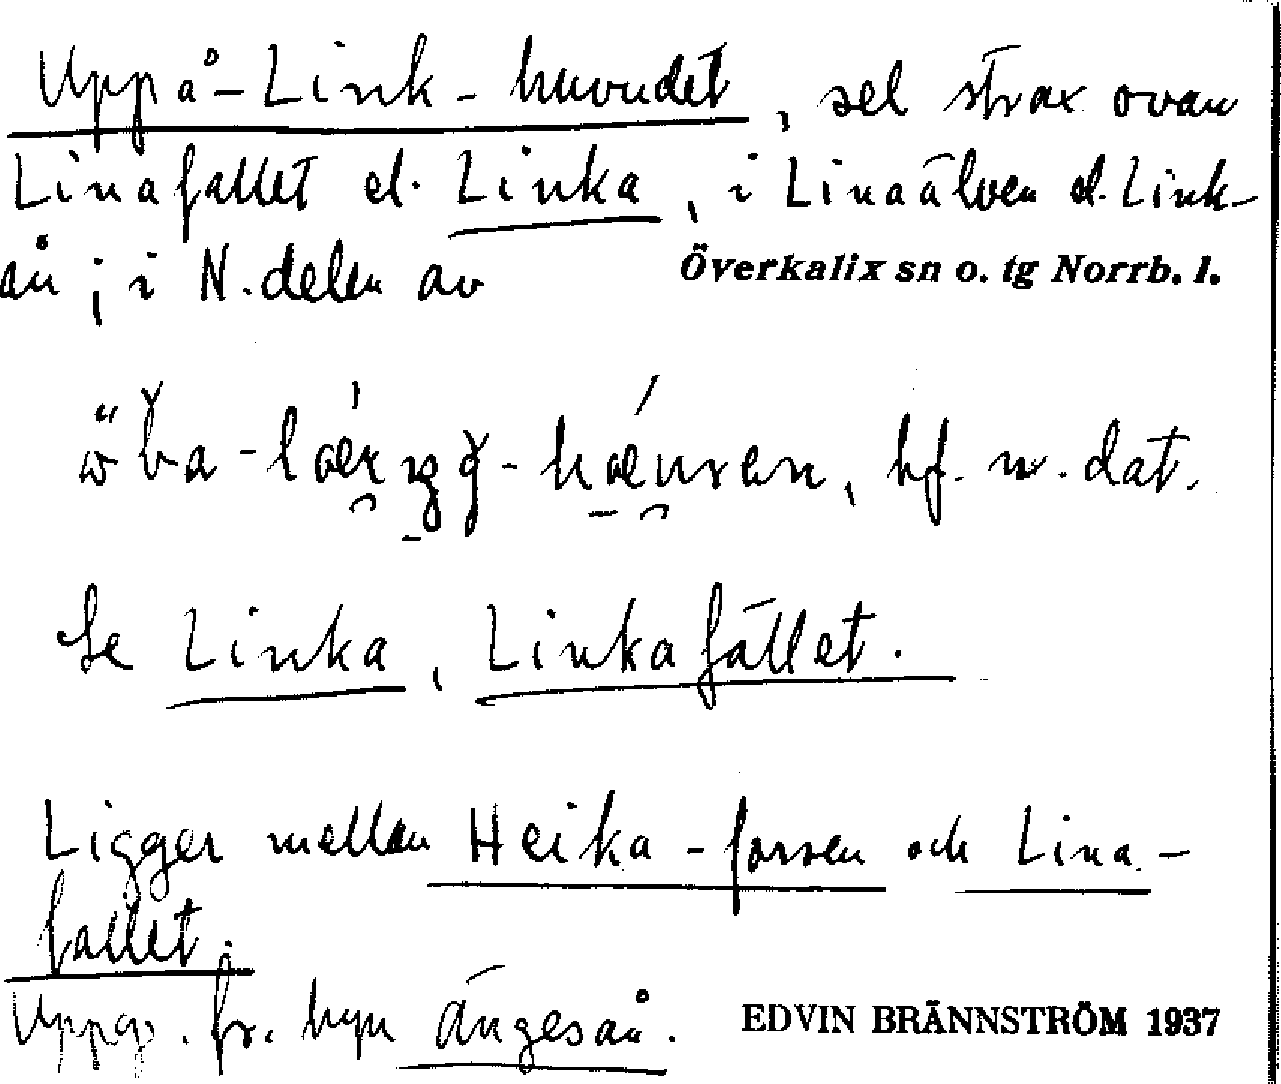 Uppå-Link-huvudet, sel strax ovan
Linafallet el. Linka, i Linaälven el. Link-
ån; i N.delen av Överkalix sn o. tg Norrb. l.
bf. n. dat.
Se Linka, Linkafallet.
Ligger mellan Heika-forsen och Lina-
fallet.
Uppg. fr. byn Ängesån. EDVIN BRÄNNSTRÖM 1937